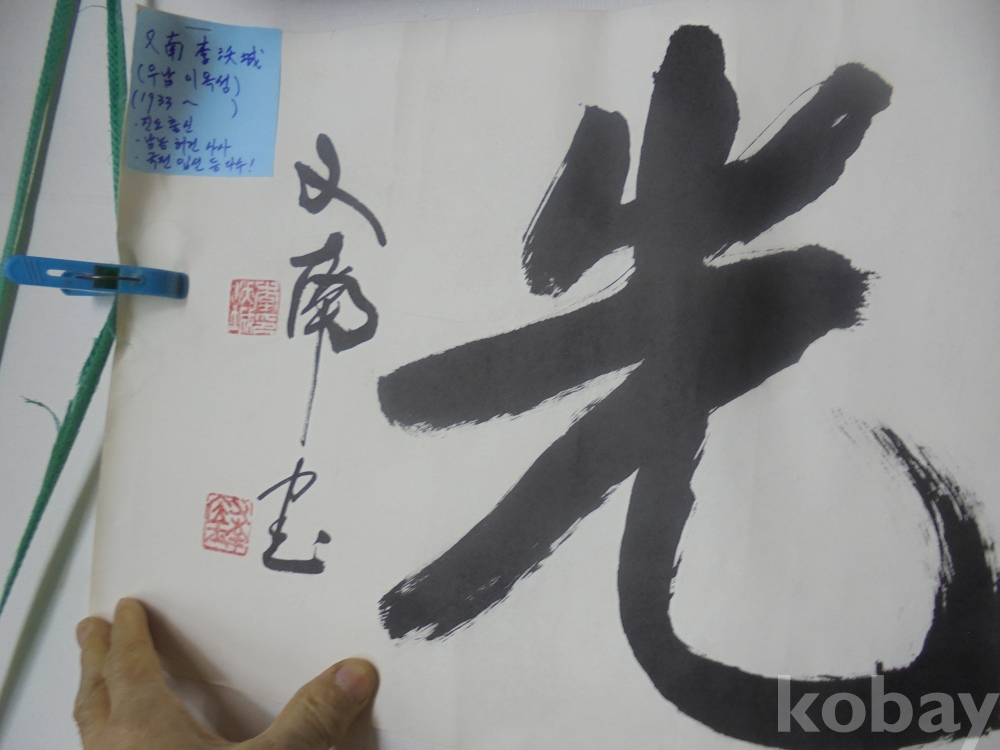 又南 李沃城
(우남 이옥성)
(1933 ~ )
· 진도 출신
· 남농 허건 사사
· 국전 입선 등 다수!
光
又南 書
kobay